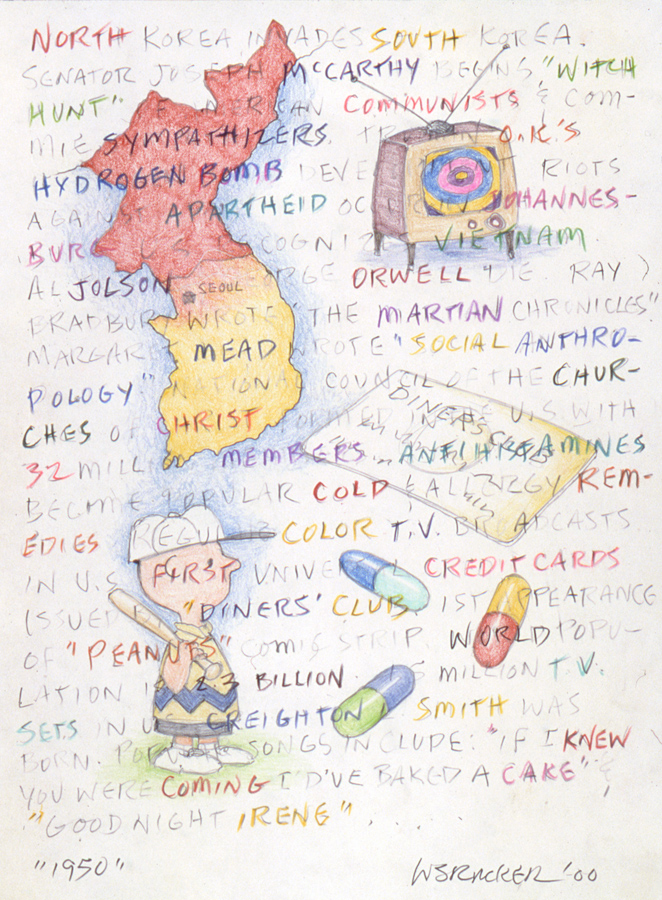 NORTH KOREA INVADES SOUTH KOREA.
SENATOR JOSEPH McCARTHY BEGINS "WITCH
HUNT" OF AMERICAN COMMUNISTS & COM-
MIE SYMPATHIZERS. TRUMAN O.K.'S
HYDROGEN BOMB DEVELOPMENT RIOTS
AGAINST APARTHEID OCCUR IN JOHANNES-
BURG. U.S. RECOGNIZES VIETNAM.
AL JOLSON & GEORGE ORWELL DIE. RAY
SEOUL
BRADBURY WROTE "THE MARTIAN CHRONICLES"
MARGARET MEAD WROTE "SOCIAL ANTHRO-
POLOGY." NATIONAL COUNCIL OF THE CHUR-
DINERS CLUB
CHES OF CHRIST FORMED IN THE U.S. WITH
32 MILLION MEMBERS. ANTIHISTAMINES
BECOME POPULAR COLD & ALLERGY REM-
EDIES REGULAR COLOR T.V. BROADCASTS
IN U.S. FIRST UNIVERSAL CREDIT CARDS
ISSUED BY "DINERS' CLUB. 1ST APPEARANCE
OF "PEANUTS" COMIC STRIP. WORLD POPU-
LATION IS 2.3 BILLION. MILLION T.V.
SETS IN U.S. CREIGHTON SMITH WAS
BORN. POPULAR SONGS INCLUDE: "IF I KNEW
YOU WERE COMING I'D'VE BAKED A CAKE" &
"GOOD NIGHT IRENE" . . . .
"1950"
WSRACKER '00